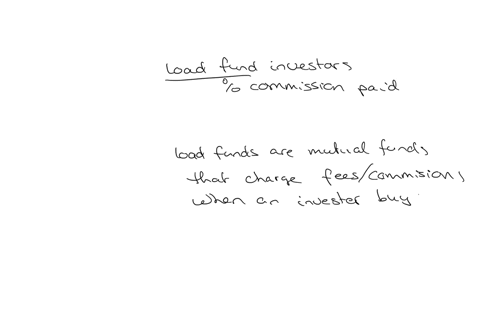 load fund investors
% commission paid
load funds are mutual funds
that charge fees/commisions
when an invester buy